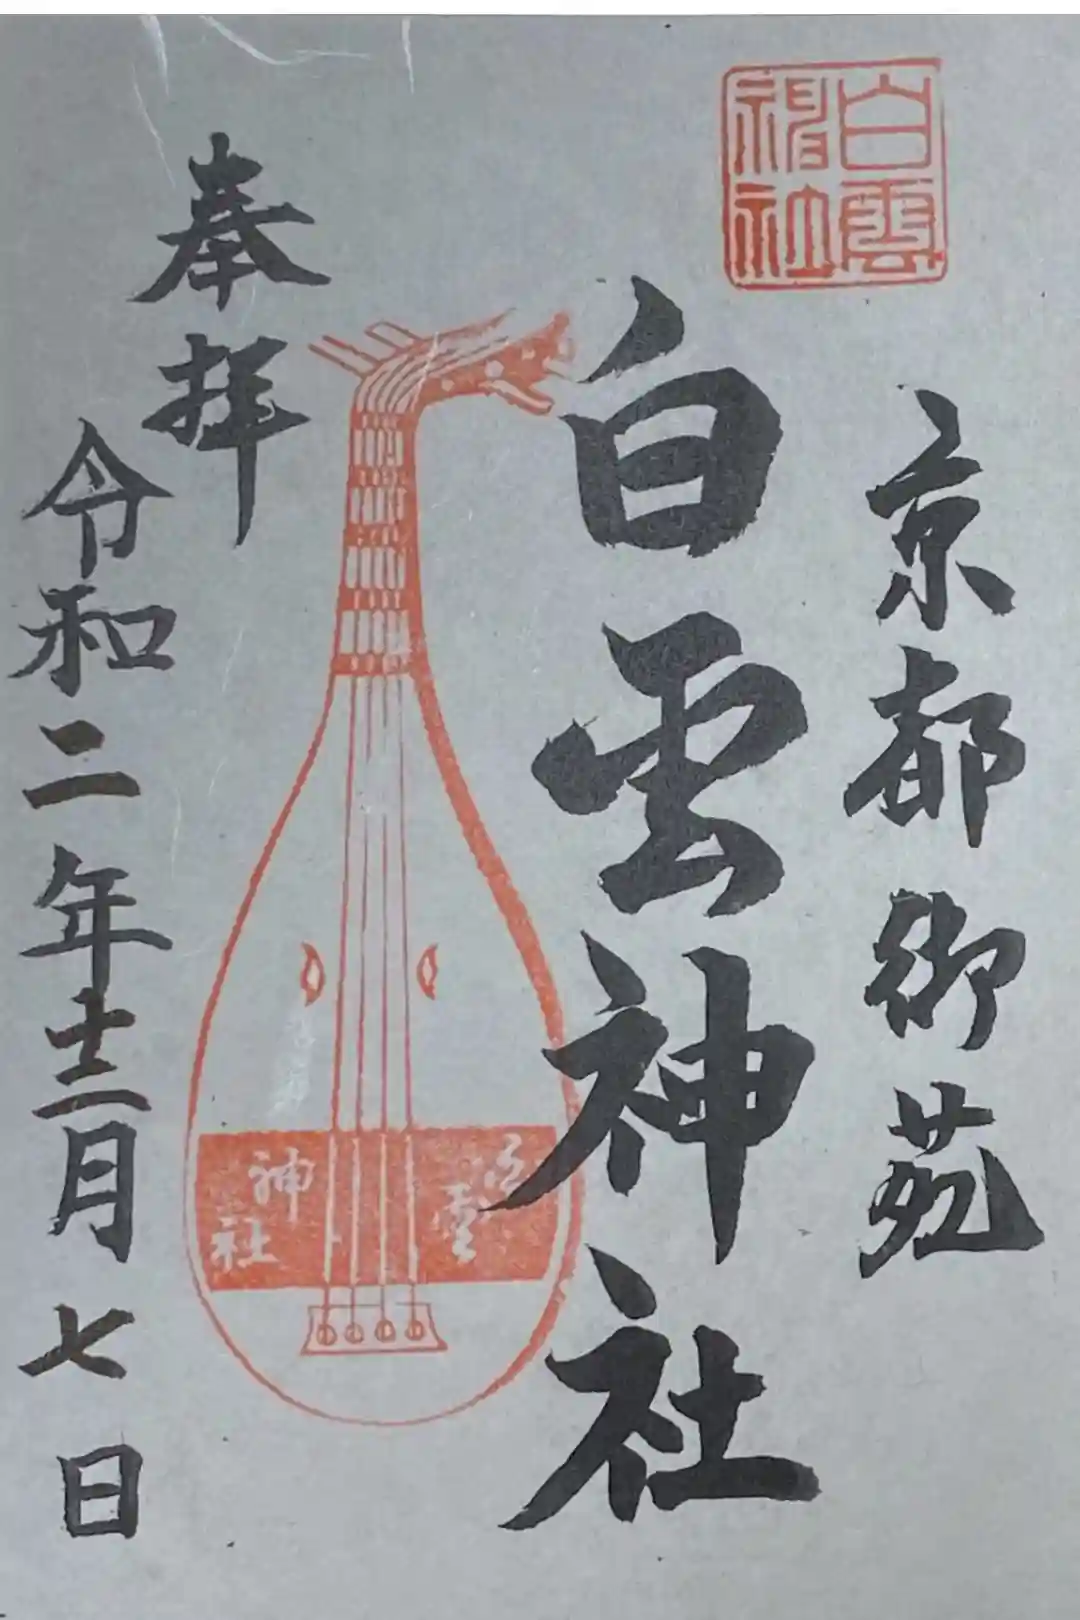 白雲
神社
京都御苑
白雲神社
奉拝
白雲
神社
令和二年十二月七日